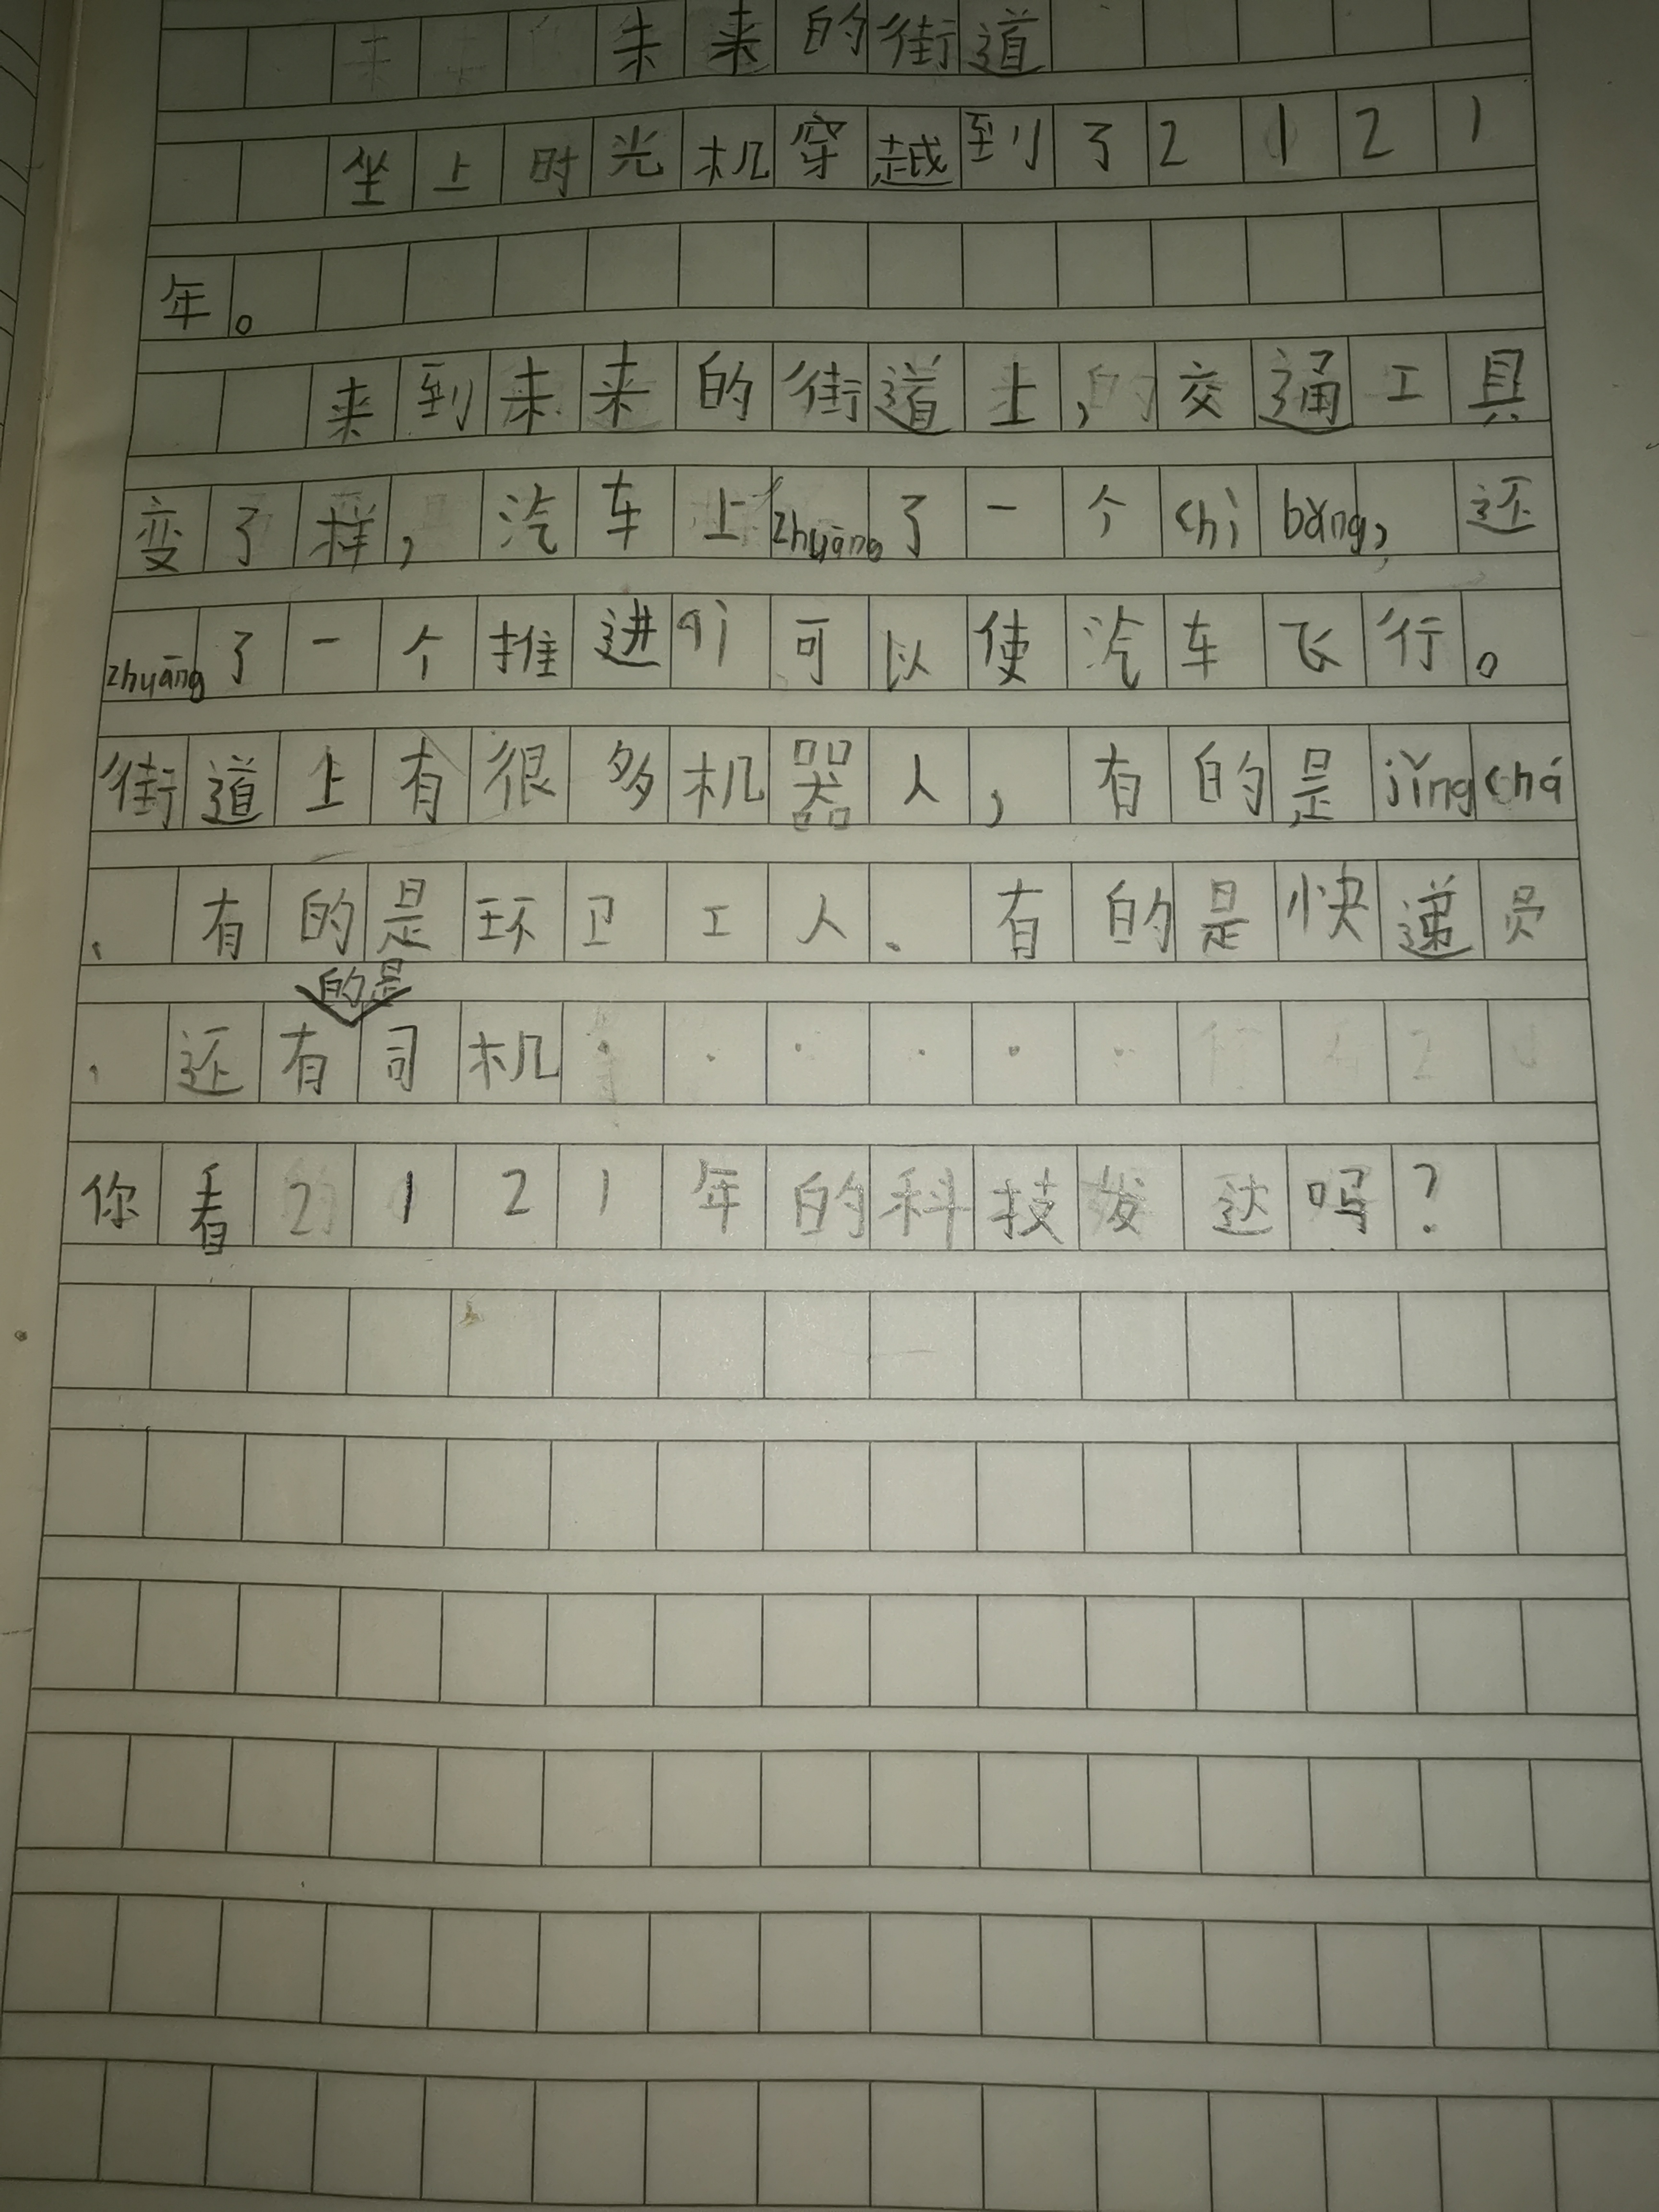 未来的街道
坐上时光机穿越到了2121
年。
来到未来的街道上,交通工具
变了样,汽车上zhuāng了一个chì bǎng,还
zhuāng了一个推进qì可以使汽车飞行。
街道上有很多机器人,有的是jǐngchá
、有的是环卫工人、有的是快递员
、还有的是司机······
你看2121年的科技发达吗?